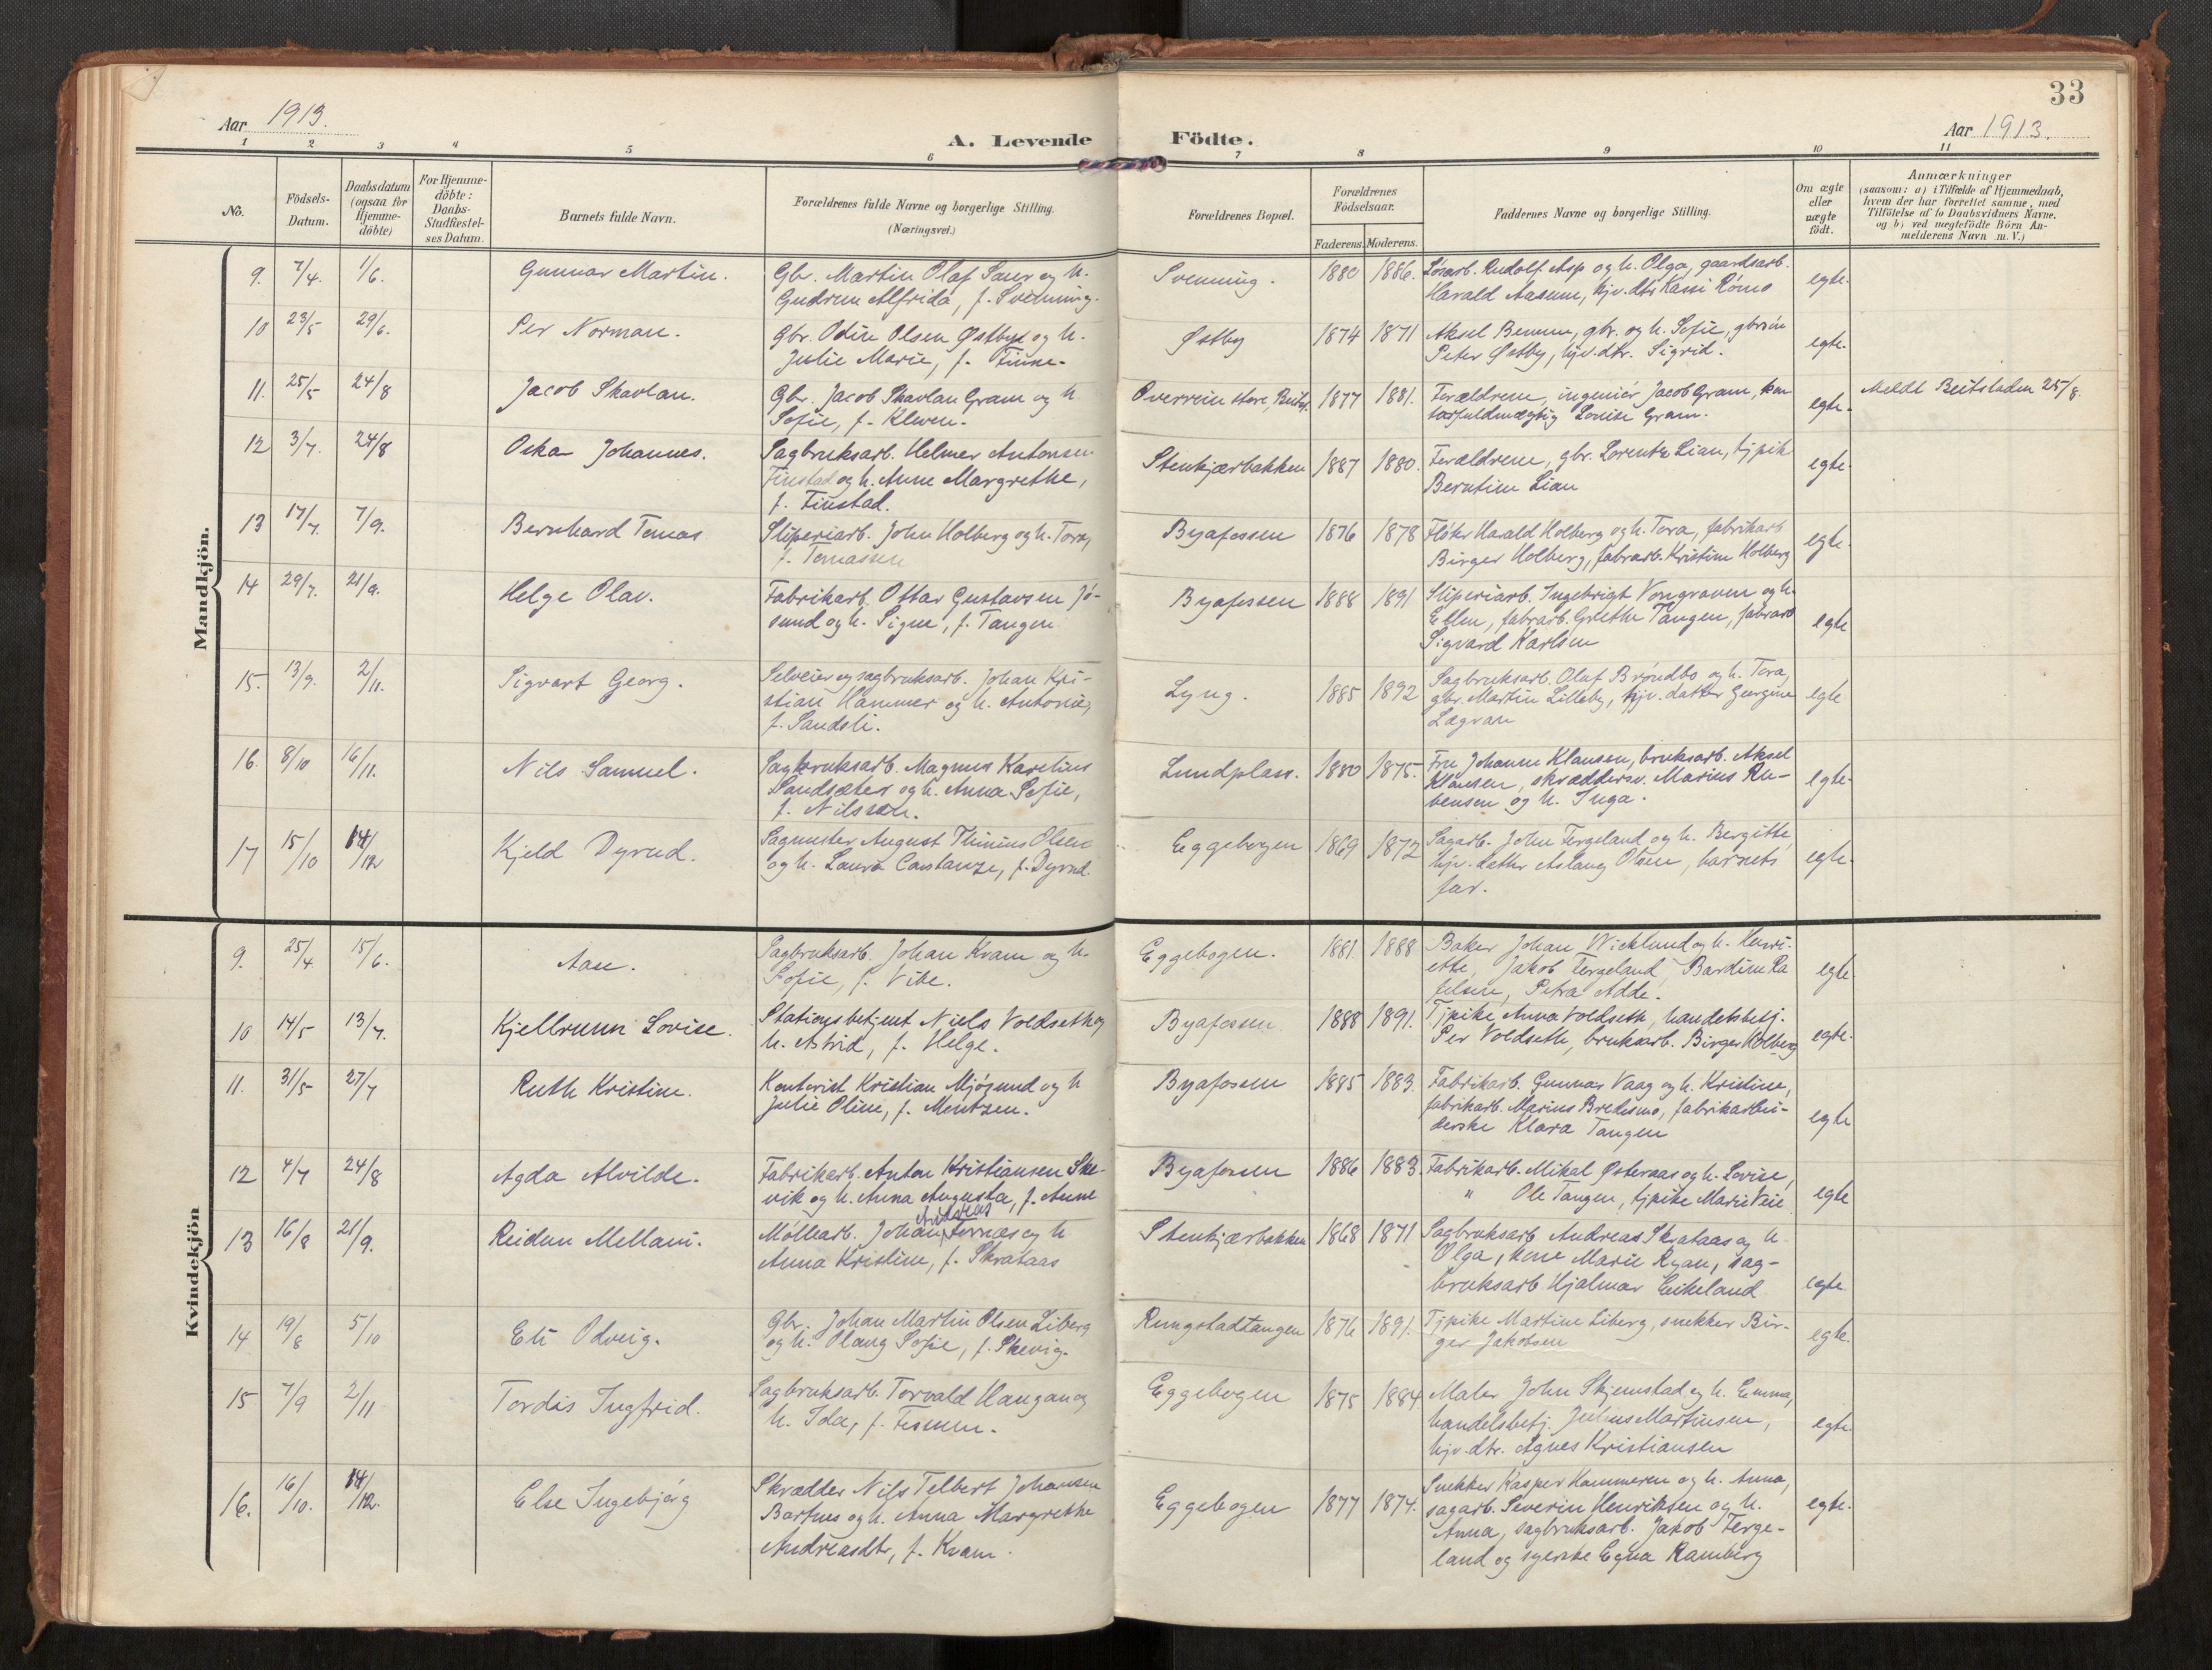 33
Aar 1913.
A. Levende Födte.
Aar 1913.
1 2 3 4 5 6 7 8 9 10 11
No.
Födsels-
Datum.
Daabsdatum
(ogsaa for
Hjemme-
döbte)
For Hjemme-
döbte:
Daabs-
Stadfæstel-
ses Datum.
Barnets fulde Navn.
Forældrenes fulde Navne og borgerlige Stilling.
(Næringsvei.)
Forældrenes Bopæl.
Forældrenes
Födselsaar.
Faderens. Moderens.
Faddernes Navne og borgerlige Stilling.
Om ægte
eller
uægte
födt.
Anmærkninger
(saasom: a) i Tilfælde af Hjemmedaab,
hvem der har forrettet samme, med
Tilföielse af to Daabsvidners Navne.
og b) ved uægtefödte Börn An-
melderens Navn m. V.)
Mandkjön.
9. 7/4. 1/6. Gunnar Martin.
Gbr. Martin Olaf Saur og h.
Gudrun Alfrida, f. Svenning.
Svenning. 1880 1886.
Rudolf Asp og h. Olga, gaardsarb.
Harald Aasum, hjv. dtr Kassi Rømo
egte.
10 23/5 29/6. Per Norman.
Gbr. Odin Olsen Østbye og h.
Julie Marie, f. Finne.
Østby 1874 1871
Aksel Benum, gbr. og h. Sofie, gbrsön
Peter Østby, hjv. dtr. Sigrid.
egte.
11. 25/5 24/8 Jacob Skavlan.
Gbr. Jacob Skavlan Gram og h
Sofie, f. Klewen.
Overrein store, Beitst. 1877 1881.
Forældrene, ingeniør Jacob Gram, kon
torfuldmægtig Louise Gram.
egte.
Meldt Beitstaden 25/8.
12 3/7. 24/8 Oskar Johannes.
Sagbruksarb. Helmer Antonsen
Finstad og h. Anne Margrethe,
f. Finstad.
Stenkjærbakken 1887 1880.
Forældrene, gbr. Lorents Lian, tjpik
Berntine Lian
egte.
13 17/7. 7/9. Bernhard Tomas
Sliperiarb. John Holberg og h. Tora,
f. Tomassen
Byafossen 1876 1878
Fløter Harald Holberg og h. Tora, fabrikarb
Birger Holberg, fabrarb. Kristine Holberg
egte.
14 29/7. 21/9. Helge Olav.
Fabrikarb. Ottar Gustavsen Jö-
sund og h. Signe, f. Tangen
Byafossen 1888 1891
Sliperiarb. Ingebrigt Vongraven og h.
Ellen, fabrarb. Grethe Tangen, fabrarb
Sigvard Karlsen
egte
15. 13/9. 2/11. Sigvart Georg.
Selveier og sagbruksarb. Johan Kri-
stian Hammer og h. Antonie,
f. Sandsli.
Lyng. 1885 1892
Sagbruksarb. Olaf Brøndbo og h. Tora,
gbr. Martin Lilleby, hjv. datter Georgine
Lægran
egte
16. 8/10 16/11. Nils Samuel.
Sagbruksarb. Magnus Karelius
Sandsæter og h. Anna Sofie,
f. Nilssen.
Lundplass. 1880 1875.
Fru Johanne Klausen, bruksarb. Aksel
Klausen, skræddersv. Marius Ru-
bensen og h. Inga.
egte.
17 15/10 14/12 Kjeld Dyrud.
Sagmester August Thinius Olsen
og h. Laura Constanze, f. Dyrud.
Eggebogen 1869 1872
Sagarb. John Tergeland og h. Bergitte,
hjv. datter Aslaug Olsen, barnets
far.
egte.
Kvindekjön
9. 25/4 15/6. Aan.
Sagbruksarb. Johan Kvam og h.
Sofie, f. Vibe.
Eggebogen. 1881. 1888
Baker Johan Wicklund og h. Henri-
ette, Jakob Tergeland, Bardine Ra
felsen, Petra Adde.
egte
10 14/5 13/7. Kjellrunn Lovise.
Stationsbetjent Niels Voldseth og
h. Astrid, f. Helge.
Byafossen 1888 1891.
Tjpike Anna Voldseth, handelsbetj.
Per Voldseth, bruksarb. Birger Holberg
egte.
11. 31/5 27/7 Ruth Kristine.
Kontorist Kristian Mjösund og h
Julie Oline, f. Mentzen.
Byafossen 1885 1883.
Fabrikarb. Gunnar Vaag og h. Kristine,
fabrikarb. Marius Bredesmo, fabrikarbei-
derske Klara Tangen
egte
12 4/7 24/8 Agda Alvilde.
Fabrikarb. Anton Kristiansen Ske-
vik og h. Anna Augusta, f. Aune
Byafossen 1886 1883.
Fabrikarb. Mikal Østeraas og h. Lovise,
" Ole Tangen, tjpike Marie Veie
egte
13 16/8 21/9. Reidun Mellani.
Andreas
Möllearb. Johan Fornæs og h
Anna Kristine, f. Skrataas
Stenkjærbakken 1868 1871
Sagbruksarb. Andreas Skrataas og h
Olga, kone Marie Ryan, sag-
bruksarb. Hjalmar Eikeland
egte
14 19/8 5/10 Eli Odveig.
Gbr. Johan Martin Olsen Liberg
og h. Olaug Sofie, f. Skevig.
Rungstadtangen 1876 1891.
Tjpike Martine Liberg, snekker Bir-
ger Jakobsen
egte.
15 7/9 2/11 Tordis Ingfrid.
Sagbruksarb. Torvald Haugan og
h. Ida, f. Fismen.
Eggebogen 1875 1884
Maler John Skjemstad og h. Emma,
handelsbetj. Julius Martinsen,
hjv. dtr. Agnes Kristiansen
egte.
16. 16/10. 14/12. Else Ingebjörg
Skrædder Nils Telbert Johansen
Bartnes og h. Anna Margrethe
Andreasdtr, f. Kvam.
Eggebogen 1877 1874.
Snekker Kasper Hammeren og h. Anna,
sagarb. Severin Henriksen og h.
Anna, sagbruksarb. Jakob Terge-
land og syerske Egna Ramberg
egte.